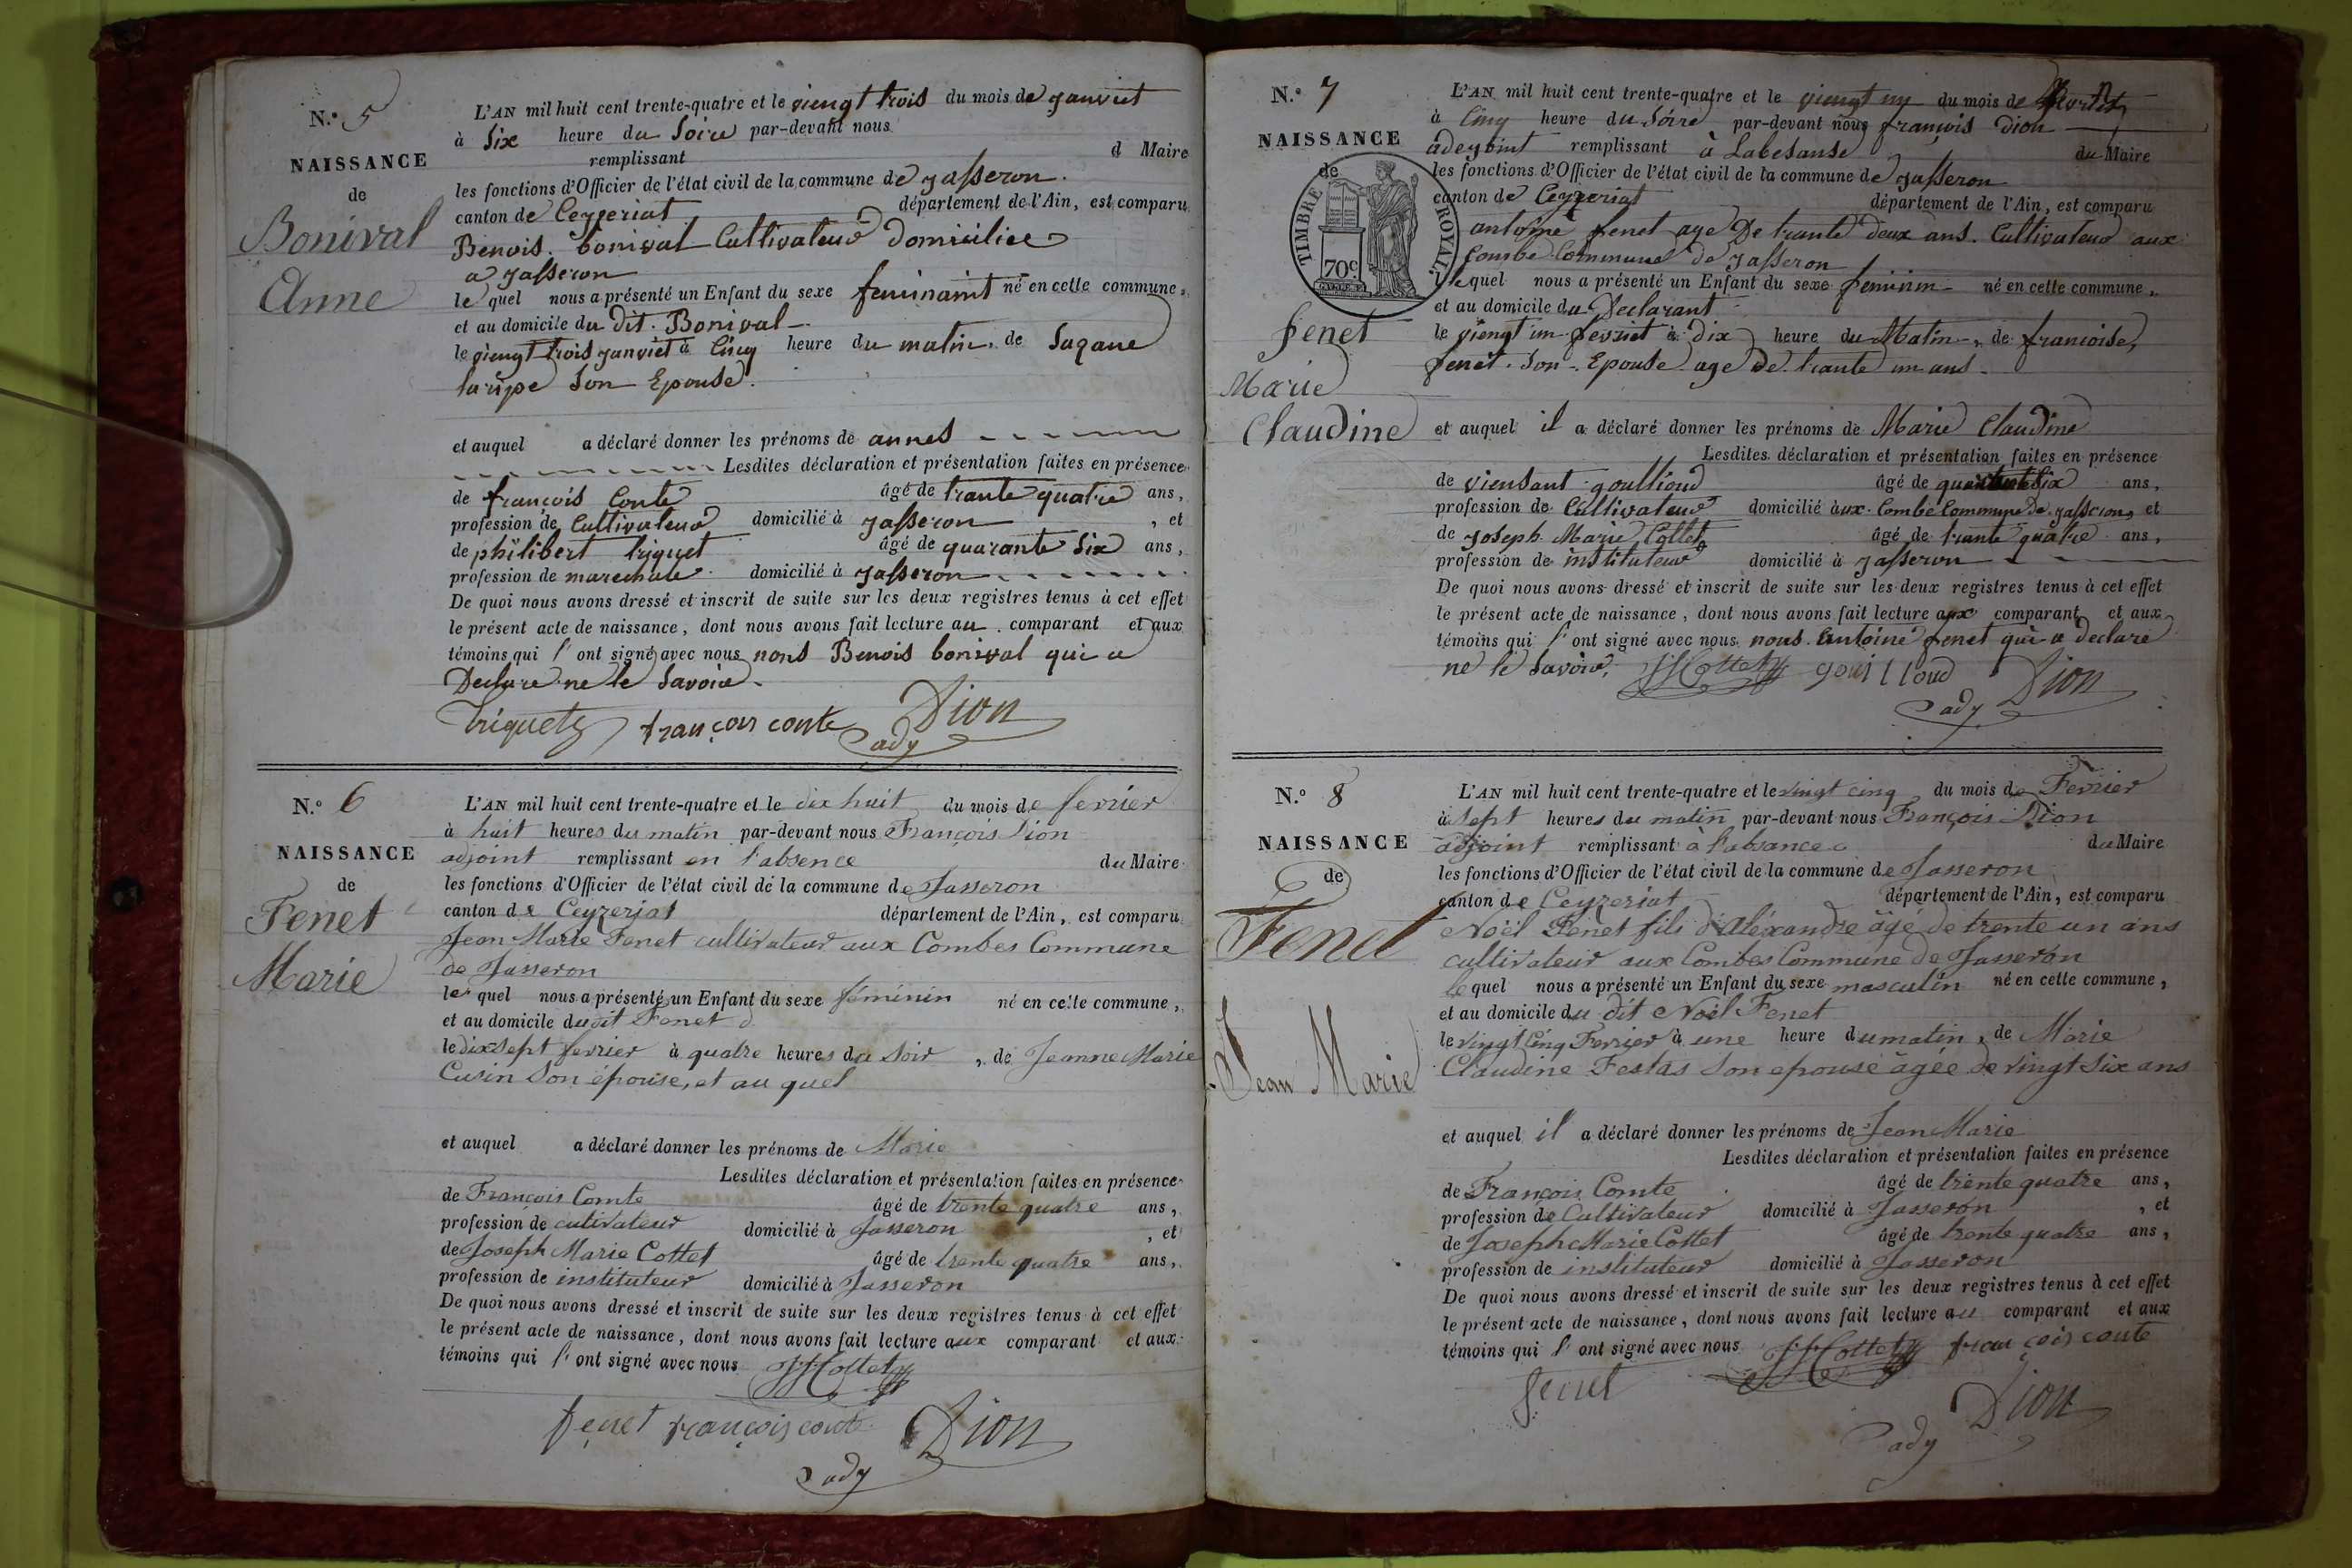 N.º 5
NAISSANCE
de
Bonival
Anne
L'AN mil huit cent trente-quatre et le viengt trois du mois de janviet
à Six heure du Soire par-devant nous
remplissant d Maire
les fonctions d'Officier de l'état civil de la commune de jasseron.
canton de Ceyzeriat département de l'Ain, est comparu
Benois. bonival Cultivateur domicilice
a jasseron
le quel nous a présenté un Enfant du sexe feminaint né en cette commune,
et au domicile du dit. Bonival
le viengt trois janviet à Cinq heure du matin, de Sugane
larupe Son Epouse.
et auquel a déclaré donner les prénoms de annes
Lesdites déclaration et présentation faites en présence
de françois Conte âgé de trante quatre ans,
profession de Cultivateur domicilié à jasseron , et
de philibert triquet âgé de quarante Six ans,
profession de marechale domicilié à jasseron
De quoi nous avons dressé et inscrit de suite sur les deux registres tenus à cet effet
le présent acte de naissance, dont nous avons fait lecture au comparant et aux
témoins qui l' ont signé avec nous nons Benois bonival qui a
Declare ne le Savoire.
triquet françois conte Dion
ady
N.º 6
NAISSANCE
de
Fenet
Marie
L'AN mil huit cent trente-quatre et le dix huit du mois de fevrier
à huit heures du matin par-devant nous François Dion
adjoint remplissant en l'absence du Maire
les fonctions d'Officier de l'état civil de la commune de Jasseron
canton de Ceyzeriat département de l'Ain, est comparu
Jean Marie Fenet cultivateur aux Combes Commune
de Jasseron
le quel nous a présenté un Enfant du sexe féminin né en cette commune,
et au domicile dudit Fenet
le dix Sept fevrier à quatre heures du Soir , de Jeanne Marie
Cusin Son épouse, et au quel
et auquel a déclaré donner les prénoms de Marie
Lesdites déclaration et présentation faites en présence
de François Comte âgé de trente quatre ans,
profession de cutivateur domicilié à Jasseron , et
de Joseph Marie Cottet âgé de trente quatre ans,
profession de instituteur domicilié à Jasseron
De quoi nous avons dressé et inscrit de suite sur les deux registres tenus à cet effet
le présent acte de naissance, dont nous avons fait lecture aux comparant et aux
témoins qui l' ont signé avec nous JMCottet
fenet françois conte Dion
ady
N.º 7
NAISSANCE
de
TIMBRE ROYAL
70c
fenet
Marie
Claudine
L'AN mil huit cent trente-quatre et le viengt un du mois de
à Cinq heure du Soire par-devant nous françois Dion
adejoint remplissant à Labesanse du Maire
les fonctions d'Officier de l'état civil de la commune de jasseron
canton de Ceyzeriat département de l'Ain, est comparu
antoine fenet age De trante deux ans. Cultivateur aux
Combe Commune de jasseron
le quel nous a présenté un Enfant du sexe feminin né en cette commune,
et au domicile du Declarant
le viengt un fevriet à dix heure du Matin, de francoise,
fenet. Son Epouse age De trante un ans
et auquel il a déclaré donner les prénoms de Marie Claudine
Lesdites déclaration et présentation faites en présence
de viensant goulliond âgé de ans,
profession de Cultivateur domicilié aux Combe Commune de jasseron, et
de joseph Marie Cottet âgé de trante quatre ans,
profession de instituteur domicilié à jasseron
De quoi nous avons dressé et inscrit de suite sur les deux registres tenus à cet effet
le présent acte de naissance, dont nous avons fait lecture aux comparant et aux
témoins qui l' ont signé avec nous nous antoine fenet qui a declaré
ne le Savoire. JMCottet gouilloud Dion
ady
N.º 8
NAISSANCE
de
Fenet
Jean Marie
L'AN mil huit cent trente-quatre et le vingt cinq du mois de Fevrier
à Sept heures du matin par-devant nous François Dion
adjoint remplissant à l'absance du Maire
les fonctions d'Officier de l'état civil de la commune de Jasseron
canton de Ceyzeriat département de l'Ain, est comparu
Noël Fenet fils d'Aléxandre âgé de trente un ans
cultivateur aux Combes Commune de Jasseron
le quel nous a présenté un Enfant du sexe masculin né en cette commune,
et au domicile du dit Noël Fenet
le vingt Cinq Fevrier à une heure du matin, de Marie
Claudine Festas Son epouse âgée de vingt Six ans
et auquel il a déclaré donner les prénoms de Jean Marie
Lesdites déclaration et présentation faites en présence
de François Comte âgé de trente quatre ans,
profession de Cultivateur domicilié à Jasseron , et
de Joseph Marie Cottet âgé de trente quatre ans,
profession de instituteur domicilié à Jasseron
De quoi nous avons dressé et inscrit de suite sur les deux registres tenus à cet effet
le présent acte de naissance, dont nous avons fait lecture au comparant et aux
témoins qui l' ont signé avec nous JMCottet françois conte
fenet Dion
ady